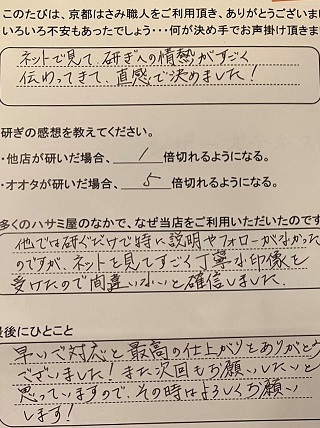 このたびは、京都はさみ職人をご利用頂き、ありがとうございま
いろいろ不安もあったでしょう・・・何が決め手でお声掛け頂きま
ネットで見て、研ぎへの情熱がすごく
伝わってきて、直感で決めました！
研ぎの感想を教えてください。
・他店が研いだ場合、 1 倍切れるようになる。
・オオタが研いだ場合、 5 倍切れるようになる。
多くのハサミ屋のなかで、なぜ当店をご利用いただいたのです
他では研ぐだけで特に説明やフォローがなかった
のですが、ネットを見てすごく丁寧な印象を
受けたので間違いないと確信しました.
最後にひとこと
早いご対応と最高の仕上がりをありがとう
ございました！また次回もお願いしたいと
思っていますので、その時はよろしくお願い
します！